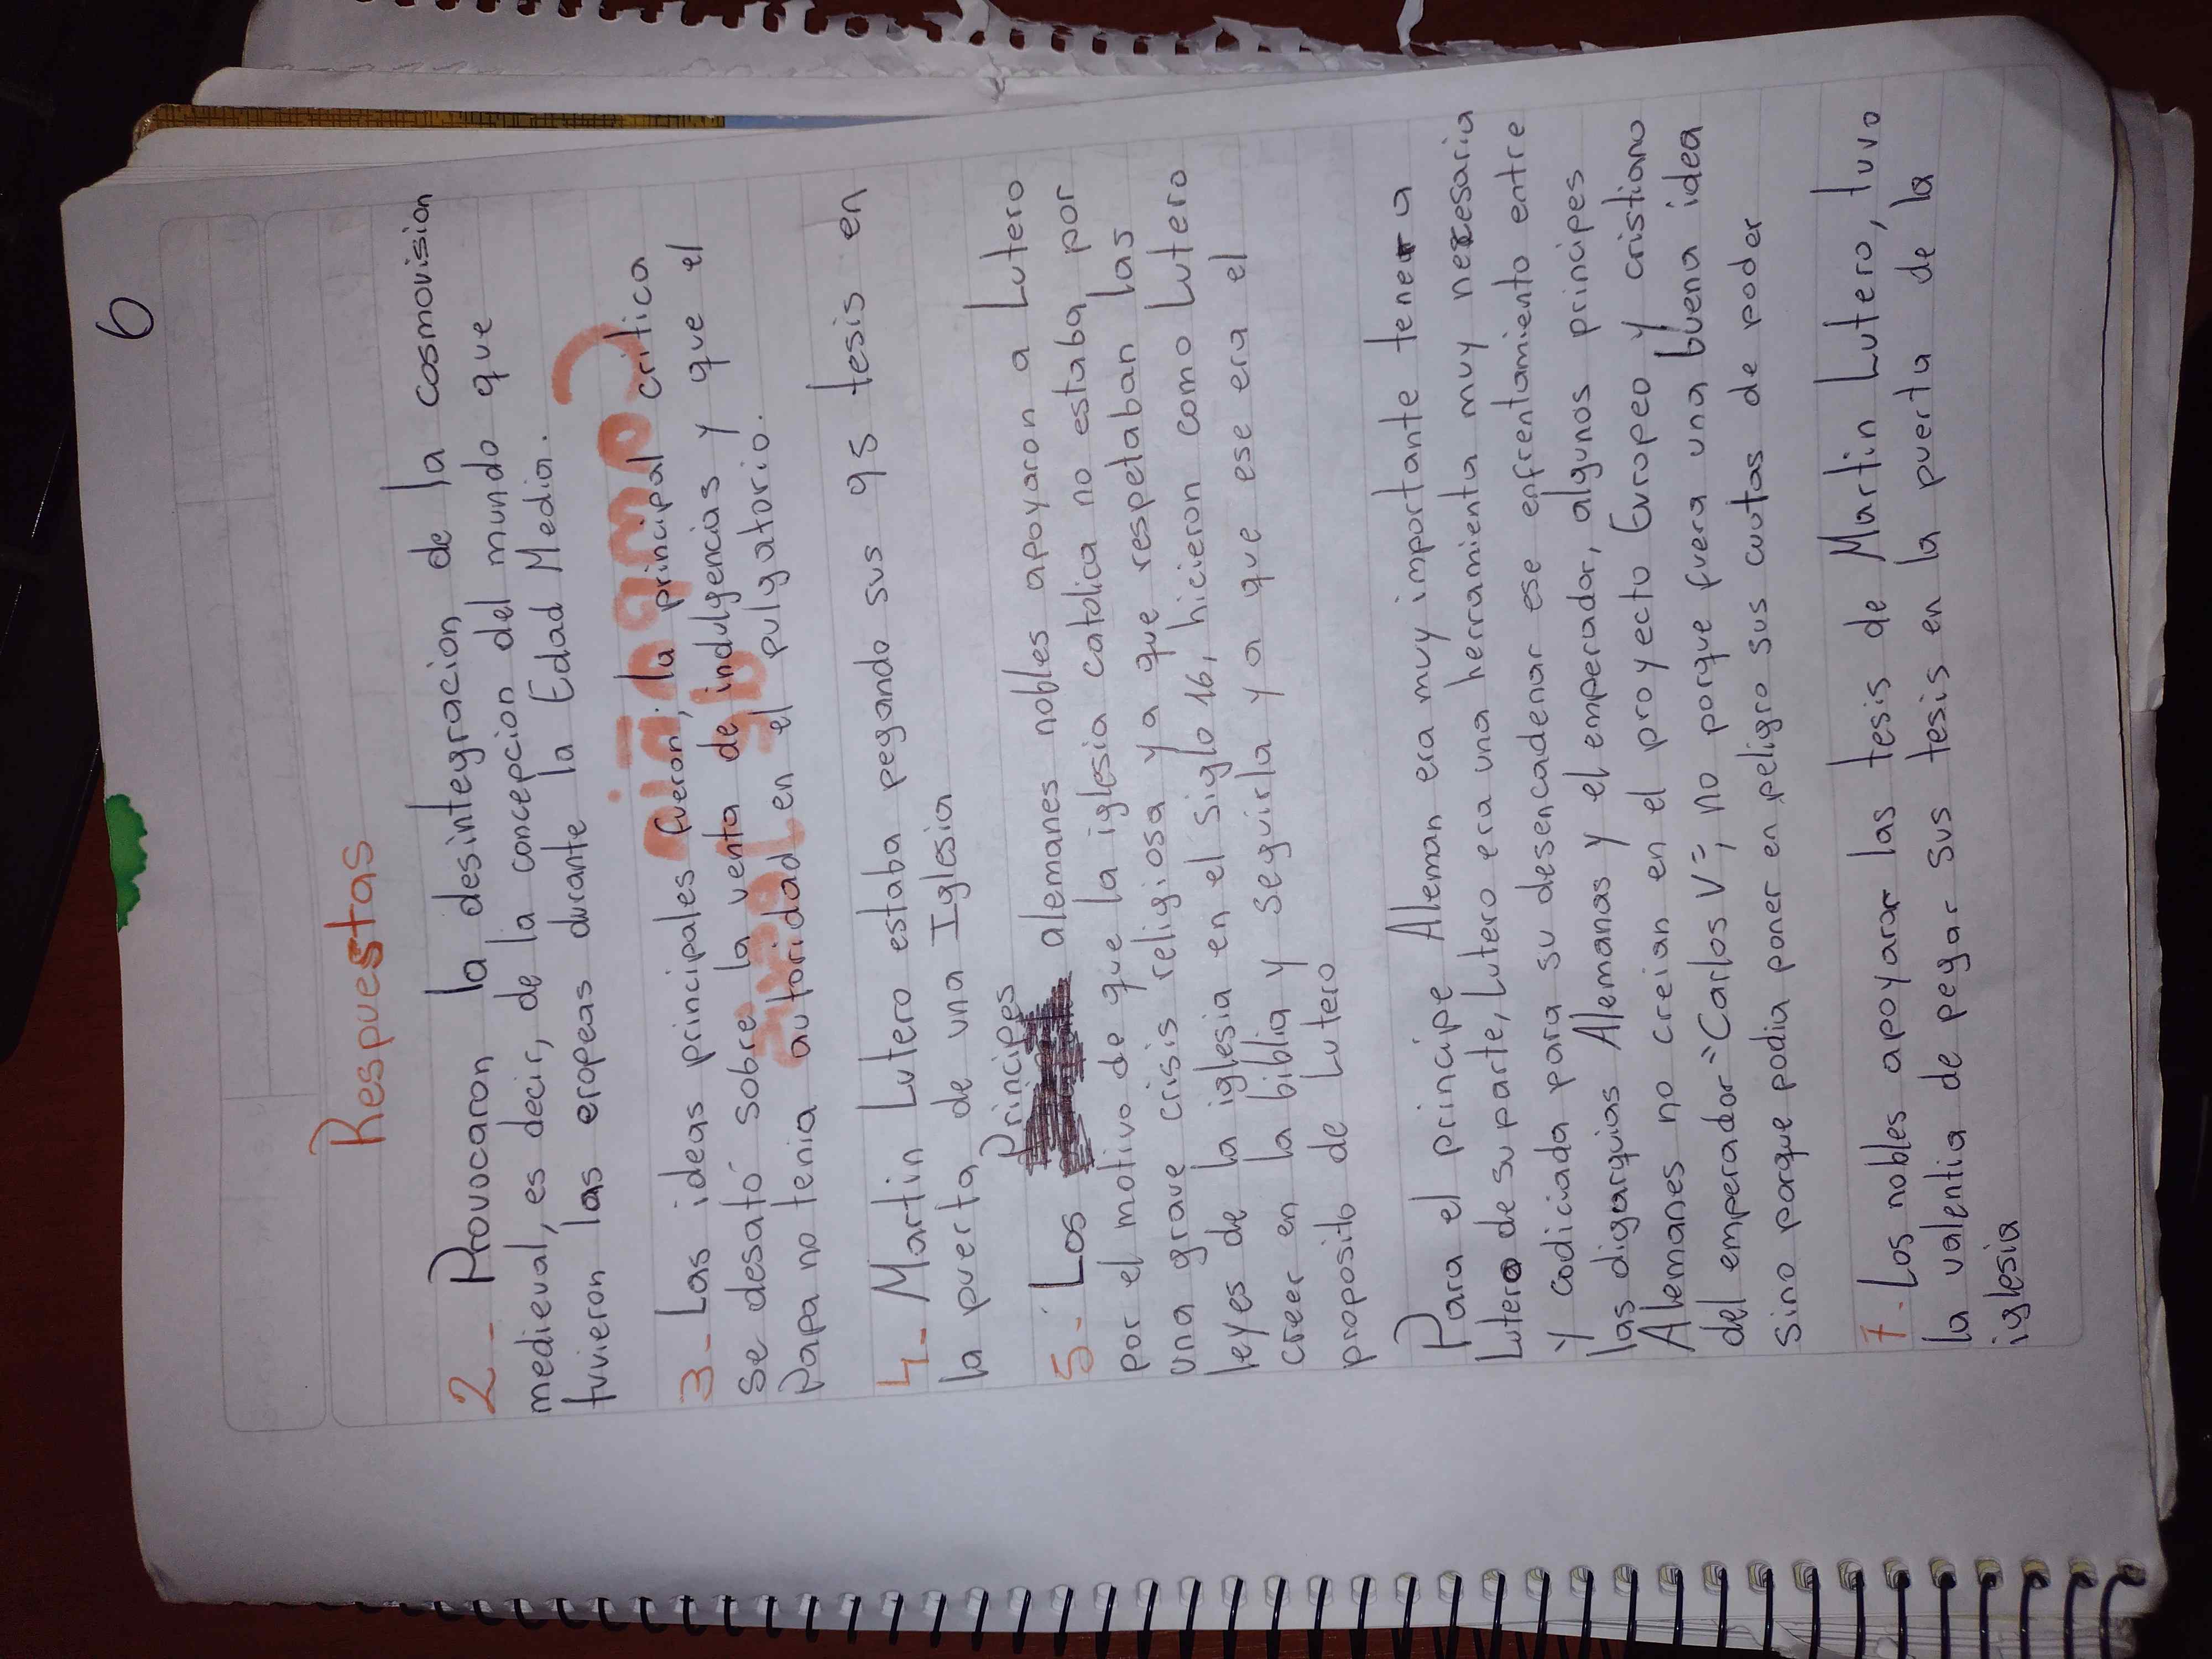 6
Respuestas
2- Provocaron la desintegracion de la cosmovision
medieval, es decir, de la concepcion del mundo que
tuvieron las eropeas durante la Edad Media.
3- Las ideas principales fueron; la principal critica
se desató sobre la venta de indulgencias y que el
Papa no tenia autoridad en el pulgatorio.
4- Martin Lutero estaba pegando sus 95 tesis en
la puerta de una Iglesia
Principes
5- Los alemanes nobles apoyaron a Lutero
por el motivo de que la iglesia catolica no estaba por
una grave crisis religiosa ya que respetaban las
leyes de la iglesia en el siglo 16, hicieron como Lutero
creer en la biblia y seguirla ya que ese era el
proposito de Lutero
Para el principe Aleman era muy importante tener a
Lutero de su parte, Lutero era una herramienta muy necesaria
y codiciada para su desencadenar ese enfrentamiento entre
las digarquias Alemanas y el emperador, algunos principes
Alemanes no creian en el proyecto Europeo y cristiano
del emperador "Carlos V=, no porque fuera una buena idea
sino porque podia poner en peligro sus cuotas de poder
7- Los nobles apoyaror las tesis de Martin Lutero, tuvo
la valentia de pegar sus tesis en la puerta de la
iglesia